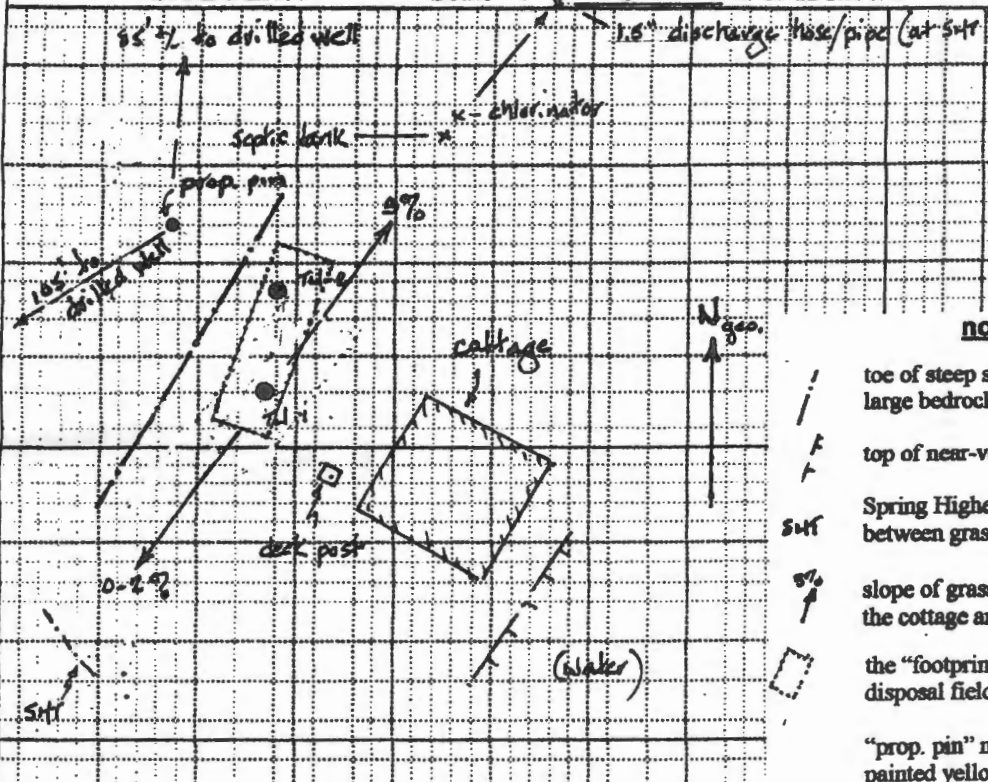 85' +/- to drilled well
1.5" discharge hose/pipe (at SHT
x - chlorinator
septic tank
x
prop. pin
9%
105' to
drilled well
N
geo.
cottage
deck post
0-2%
SHT
(water)
no
toe of steep s
large bedrock
top of near-v
SHT
Spring Highe
between gras
slope of gras
the cottage ar
the "footprin
disposal field
"prop. pin" n
painted yello